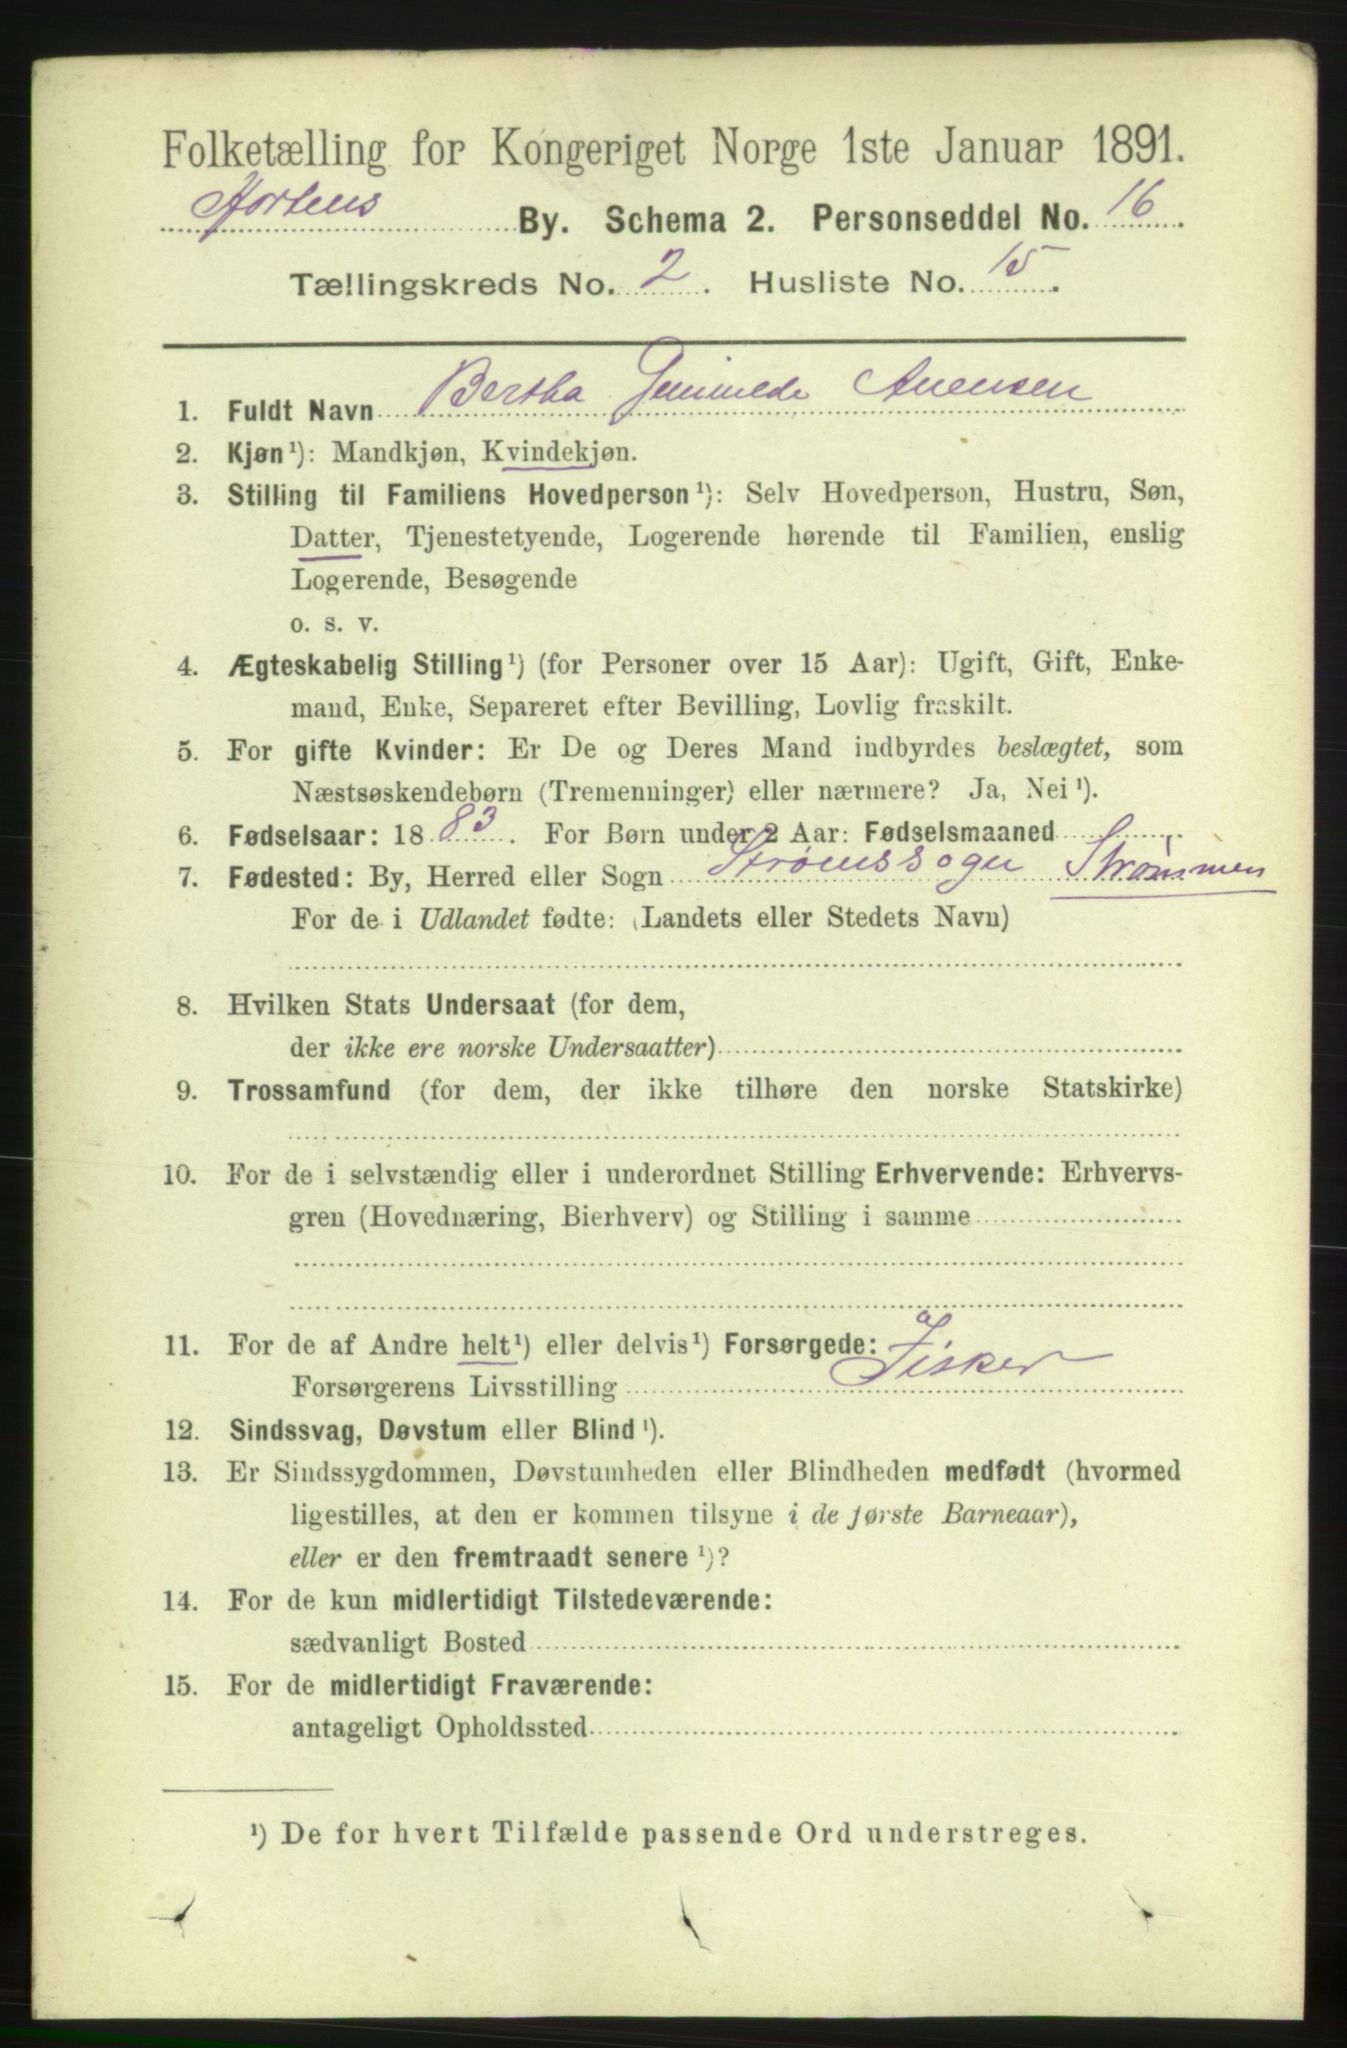 Folketælling for Kongeriget Norge 1ste Januar 1891.
Hortens By. Schema 2. Personseddel No. 16
Tællingskreds No. 2. Husliste No. 15.
1. Fuldt Navn Bertha Arnensen
2. Kjøn¹): Mandkjøn, Kvindekjøn.
3. Stilling til Familiens Hovedperson¹): Selv Hovedperson, Hustru, Søn,
Datter, Tjenestetyende, Logerende hørende til Familien, enslig
Logerende, Besøgende
o. s. v.
4. Ægteskabelig Stilling¹) (for Personer over 15 Aar): Ugift, Gift, Enke-
mand, Enke, Separeret efter Bevilling, Lovlig fraskilt.
5. For gifte Kvinder: Er De og Deres Mand indbyrdes beslægtet, som
Næstsøskendebørn (Tremenninger) eller nærmere? Ja, Nei¹).
6. Fødselsaar: 1883. For Børn under 2 Aar: Fødselsmaaned
7. Fødested: By, Herred eller Sogn Strømssogn Strømmen
For de i Udlandet fødte: (Landets eller Stedets Navn)
8. Hvilken Stats Undersaat (for dem,
der ikke ere norske Undersaatter)
9. Trossamfund (for dem, der ikke tilhøre den norske Statskirke)
10. For de i selvstændig eller i underordnet Stilling Erhvervende: Erhvervs-
gren (Hovednæring, Bierhverv) og Stilling i samme
11. For de af Andre helt¹) eller delvis¹) Forsørgede:
Forsørgerens Livsstilling Fisker
12. Sindssvag, Døvstum eller Blind¹).
13. Er Sindssygdommen, Døvstumheden eller Blindheden medfødt (hvormed
ligestilles, at den er kommen tilsyne i de første Barneaar),
eller er den fremtraadt senere¹)?
14. For de kun midlertidigt Tilstedeværende:
sædvanligt Bosted
15. For de midlertidigt Fraværende:
antageligt Opholdssted
¹) De for hvert Tilfælde passende Ord understreges.